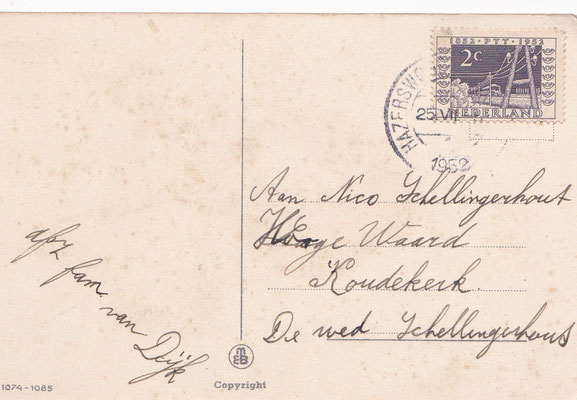 1852 · PTT · 1952
2c
NEDERLAND
HAZERSWO
25 VII
1952
Aan Nico Schellingerhout
Hooge Waard
Koudekerk.
De wed Schellingerhous
afz
fam.
van
Dijk
MEB
1074-1085
Copyright